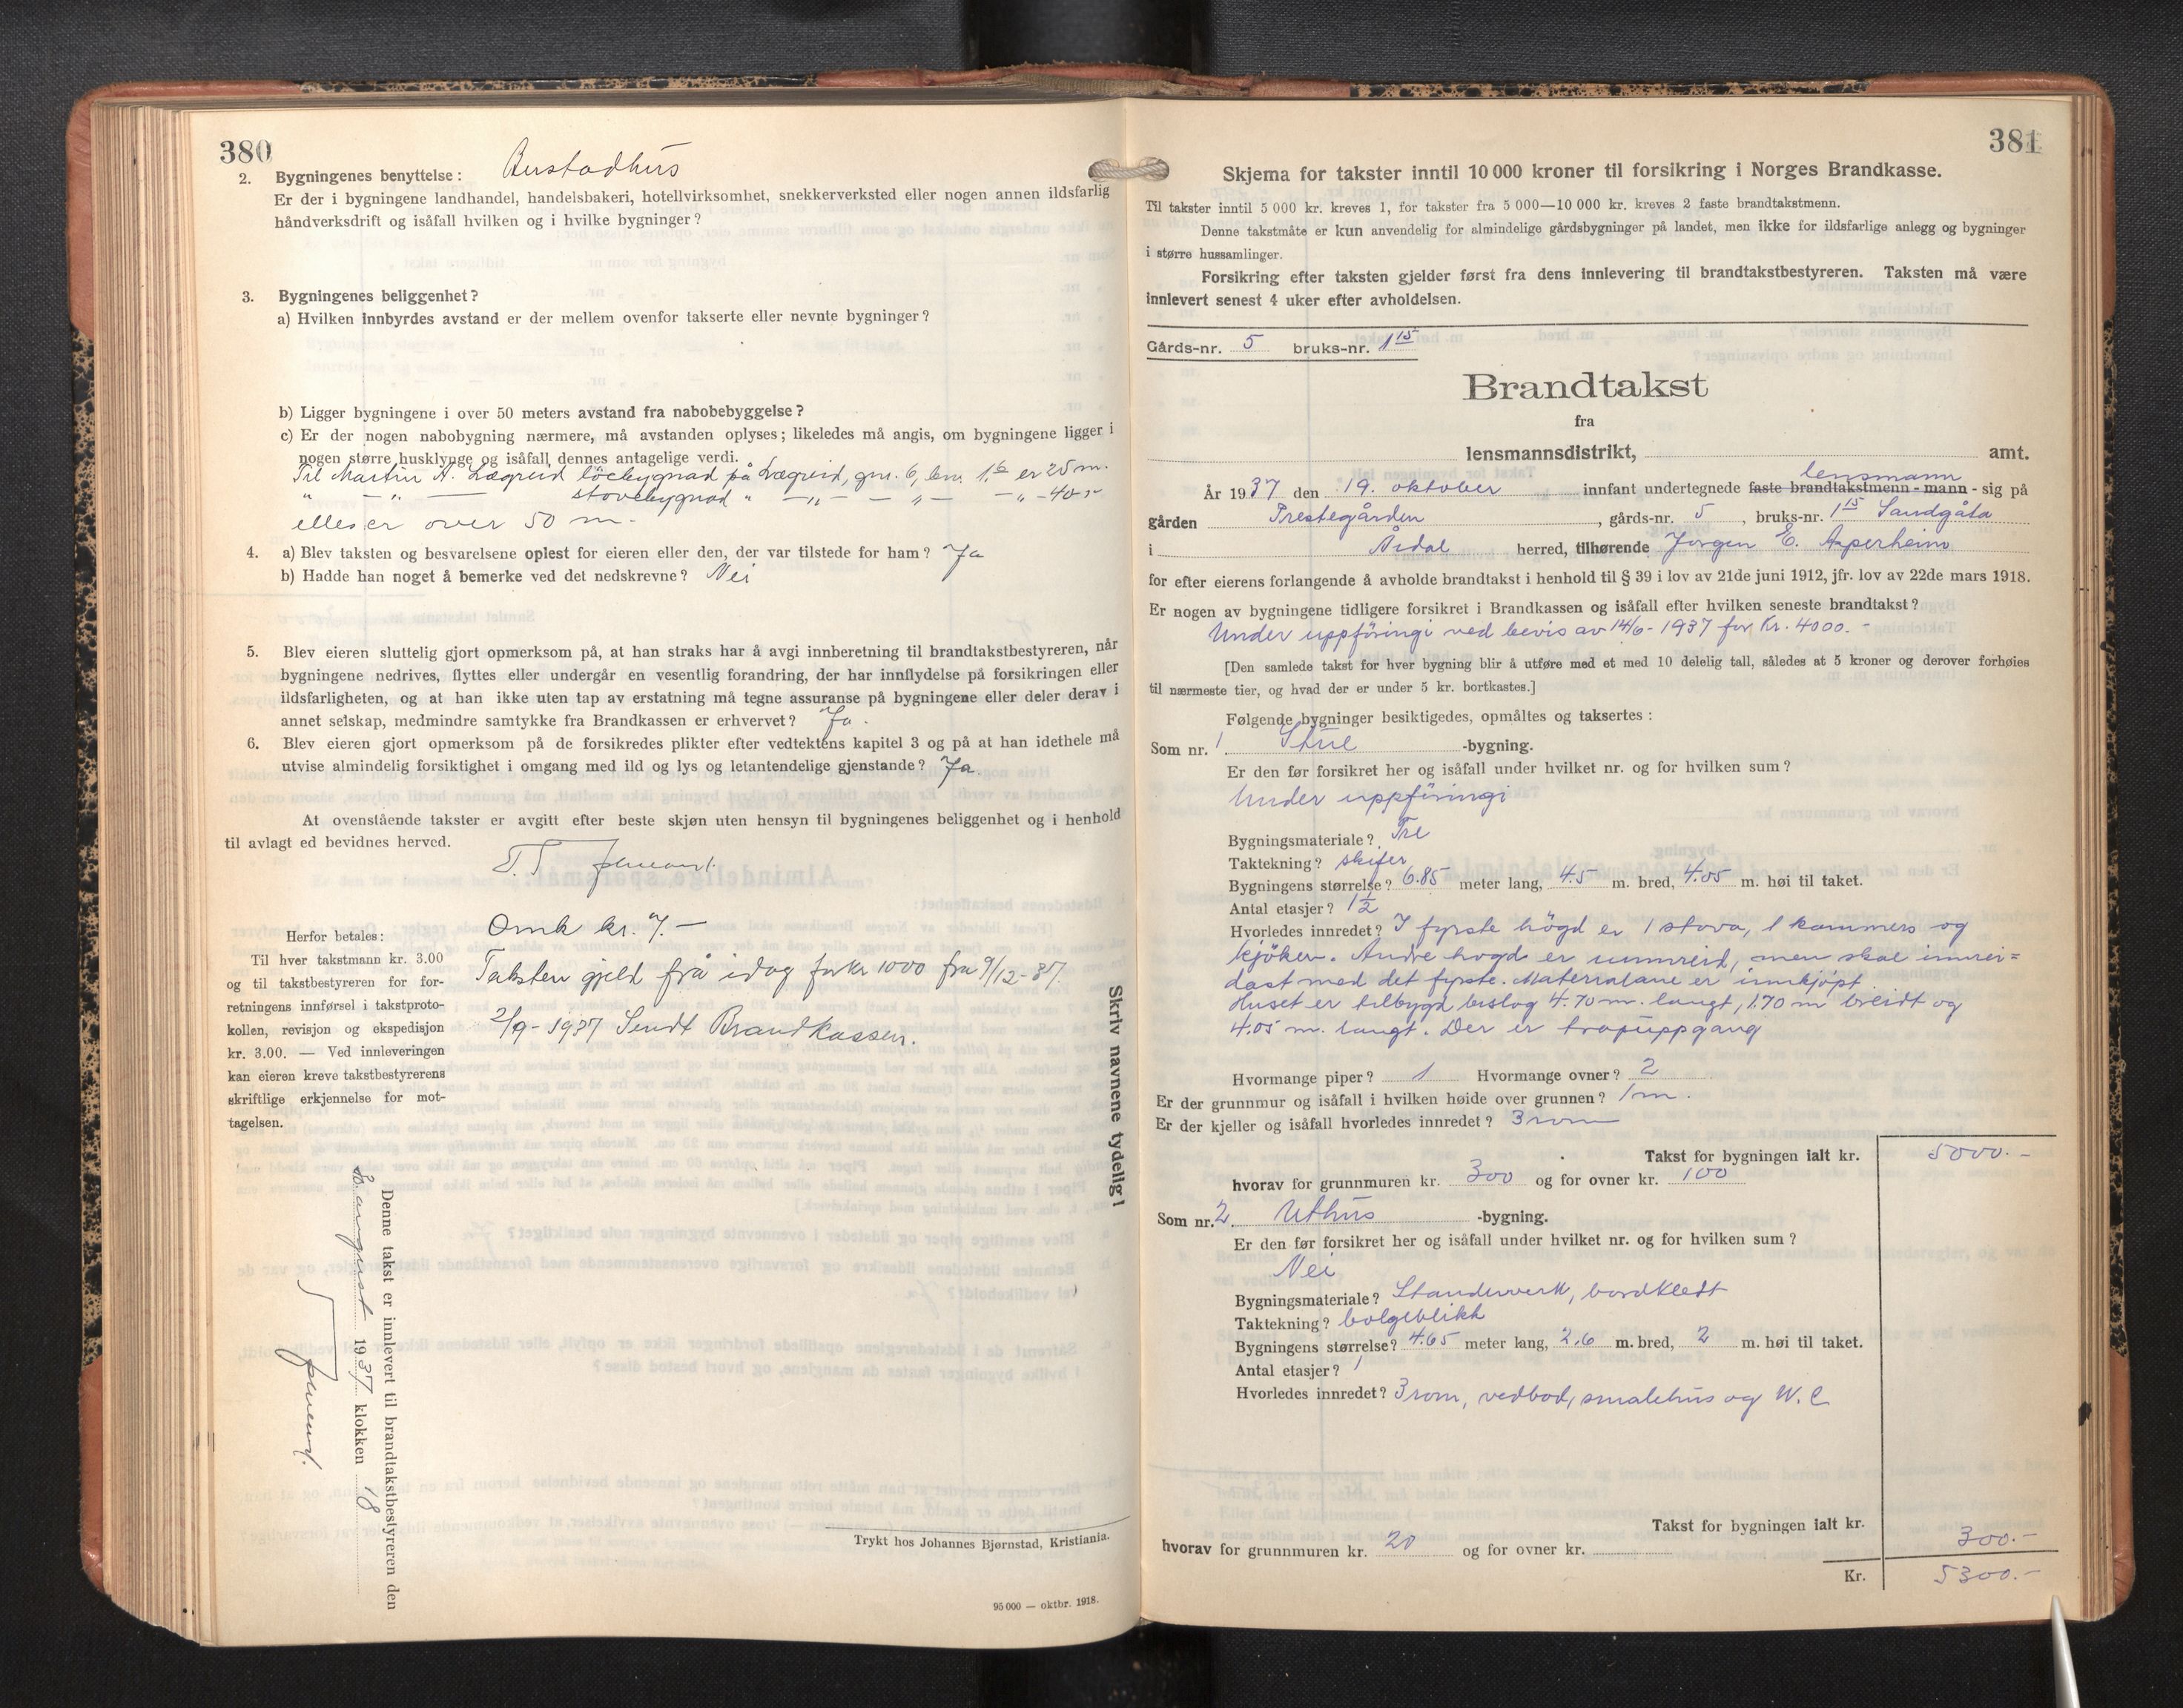 380
2. Bygningenes benyttelse: Bustadhus
Er der i bygningene landhandel, handelsbakeri, hotellvirksomhet, snekkerverksted eller nogen annen ildsfarlig
håndverksdrift og isåfall hvilken og i hvilke bygninger?
3. Bygningenes beliggenhet?
a) Hvilken innbyrdes avstand er der mellem ovenfor takserte eller nevnte bygninger?
b) Ligger bygningene i over 50 meters avstand fra nabobebyggelse?
c) Er der nogen nabobygning nærmere, må avstanden oplyses; likeledes må angis, om bygningene ligger i
nogen større husklynge og isåfall dennes antagelige verdi.
Til Martin A. Lægreid löebygnad på Lægreid, gnr. 6, bnr. 1,6 er 25 m.
" —"— stovebygnad " —"— —"— —"— 40 "
elles er over 50 m.
4. a) Blev taksten og besvarelsene oplest for eieren eller den, der var tilstede for ham? Ja
b) Hadde han noget å bemerke ved det nedskrevne? Nei
5. Blev eieren sluttelig gjort opmerksom på, at han straks har å avgi innberetning til brandtakstbestyreren, når
bygningene nedrives, flyttes eller undergår en vesentlig forandring, der har innflydelse på forsikringen eller
ildsfarligheten, og at han ikke uten tap av erstatning må tegne assuranse på bygningene eller deler derav i
annet selskap, medmindre samtykke fra Brandkassen er erhvervet? Ja.
6. Blev eieren gjort opmerksom på de forsikredes plikter efter vedtektens kapitel 3 og på at han idethele må
utvise almindelig forsiktighet i omgang med ild og lys og letantendelige gjenstande? Ja.
At ovenstående takster er avgitt efter beste skjøn uten hensyn til bygningenes beliggenhet og i henhold
til avlagt ed bevidnes herved.
Omk kr. 7.—
Taksten gjeld frå idag for kr 1000 fra 9/12-37.
2/9-1937 Sendt Brandkassen.
Herfor betales:
Til hver takstmann kr. 3.00
og til takstbestyreren for for-
retningens innførsel i takstproto-
kollen, revisjon og ekspedisjon
kr. 3.00. — Ved innleveringen
kan eieren kreve takstbestyrerens
skriftlige erkjennelse for mot-
tagelsen.
Denne takst er innlevert til brandtakstbestyreren den
august 1937 klokken 18
Skriv navnene tydelig!
Trykt hos Johannes Bjørnstad, Kristiania.
95 000 — oktbr. 1918.
381
Skjema for takster inntil 10 000 kroner til forsikring i Norges Brandkasse.
Til takster inntil 5 000 kr. kreves 1, for takster fra 5 000—10 000 kr. kreves 2 faste brandtakstmenn.
Denne takstmåte er kun anvendelig for almindelige gårdsbygninger på landet, men ikke for ildsfarlige anlegg og bygninger
i større hussamlinger.
Forsikring efter taksten gjelder først fra dens innlevering til brandtakstbestyreren. Taksten må være
innlevert senest 4 uker efter avholdelsen.
Gårds-nr. 5 bruks-nr. 1 15
Brandtakst
fra
lensmannsdistrikt, amt.
lensmann
År 1937 den 19. oktober innfant undertegnede faste brandtakstmenn - mann - sig på
gården Prestegården, gårds-nr. 5, bruks-nr. 1 15 Sandgata
i Årdal herred, tilhørende Jørgen E. Asperheim
for efter eierens forlangende å avholde brandtakst i henhold til § 39 i lov av 21de juni 1912, jfr. lov av 22de mars 1918.
Er nogen av bygningene tidligere forsikret i Brandkassen og isåfall efter hvilken seneste brandtakst?
Under uppföringi ved bevis av 14/6-1937 for Kr. 4000.-
[Den samlede takst for hver bygning blir å utføre med et med 10 delelig tall, således at 5 kroner og derover forhøies
til nærmeste tier, og hvad der er under 5 kr. bortkastes.]
Følgende bygninger besiktigedes, opmåltes og taksertes:
Som nr. 1. -bygning.
Er den før forsikret her og isåfall under hvilket nr. og for hvilken sum?
Under uppföringi
Bygningsmateriale? Tre
Taktekning? skifer
Bygningens størrelse? 6.85 meter lang, 4.5 m. bred, 4.05 m. høi til taket.
Antal etasjer? 1½
Hvorledes innredet? I fyrste högd er 1 stova, 1 kammers og
kjöken. Andre högd er uinnreid, men skal innrei=
dast med det fyrste. Materialane er innkjöpt.
Huset er tilbygd bislag 4.70 m. langt, 1.70 m breidt og
4.05 m. langt. Der er trapuppgang
Hvormange piper? 1 Hvormange ovner? 2
Er der grunnmur og isåfall i hvilken høide over grunnen? 1 m.
Er der kjeller og isåfall hvorledes innredet? 3 rom
Takst for bygningen ialt kr. 5000.-
hvorav for grunnmuren kr. 300 og for ovner kr. 100
Som nr. 2. Uthus -bygning.
Er den før forsikret her og isåfall under hvilket nr. og for hvilken sum?
Nei
Bygningsmateriale? Standerverk, bordkledt
Taktekning? bolgeblikk
Bygningens størrelse? 4.65 meter lang, 2.6 m. bred, 2 m. høi til taket.
Antal etasjer? 1
Hvorledes innredet? 3 rom, vedbod, smalehus og W.C
Takst for bygningen ialt kr. 300.-
hvorav for grunnmuren kr. 20 og for ovner kr.
Kr. 5300.-